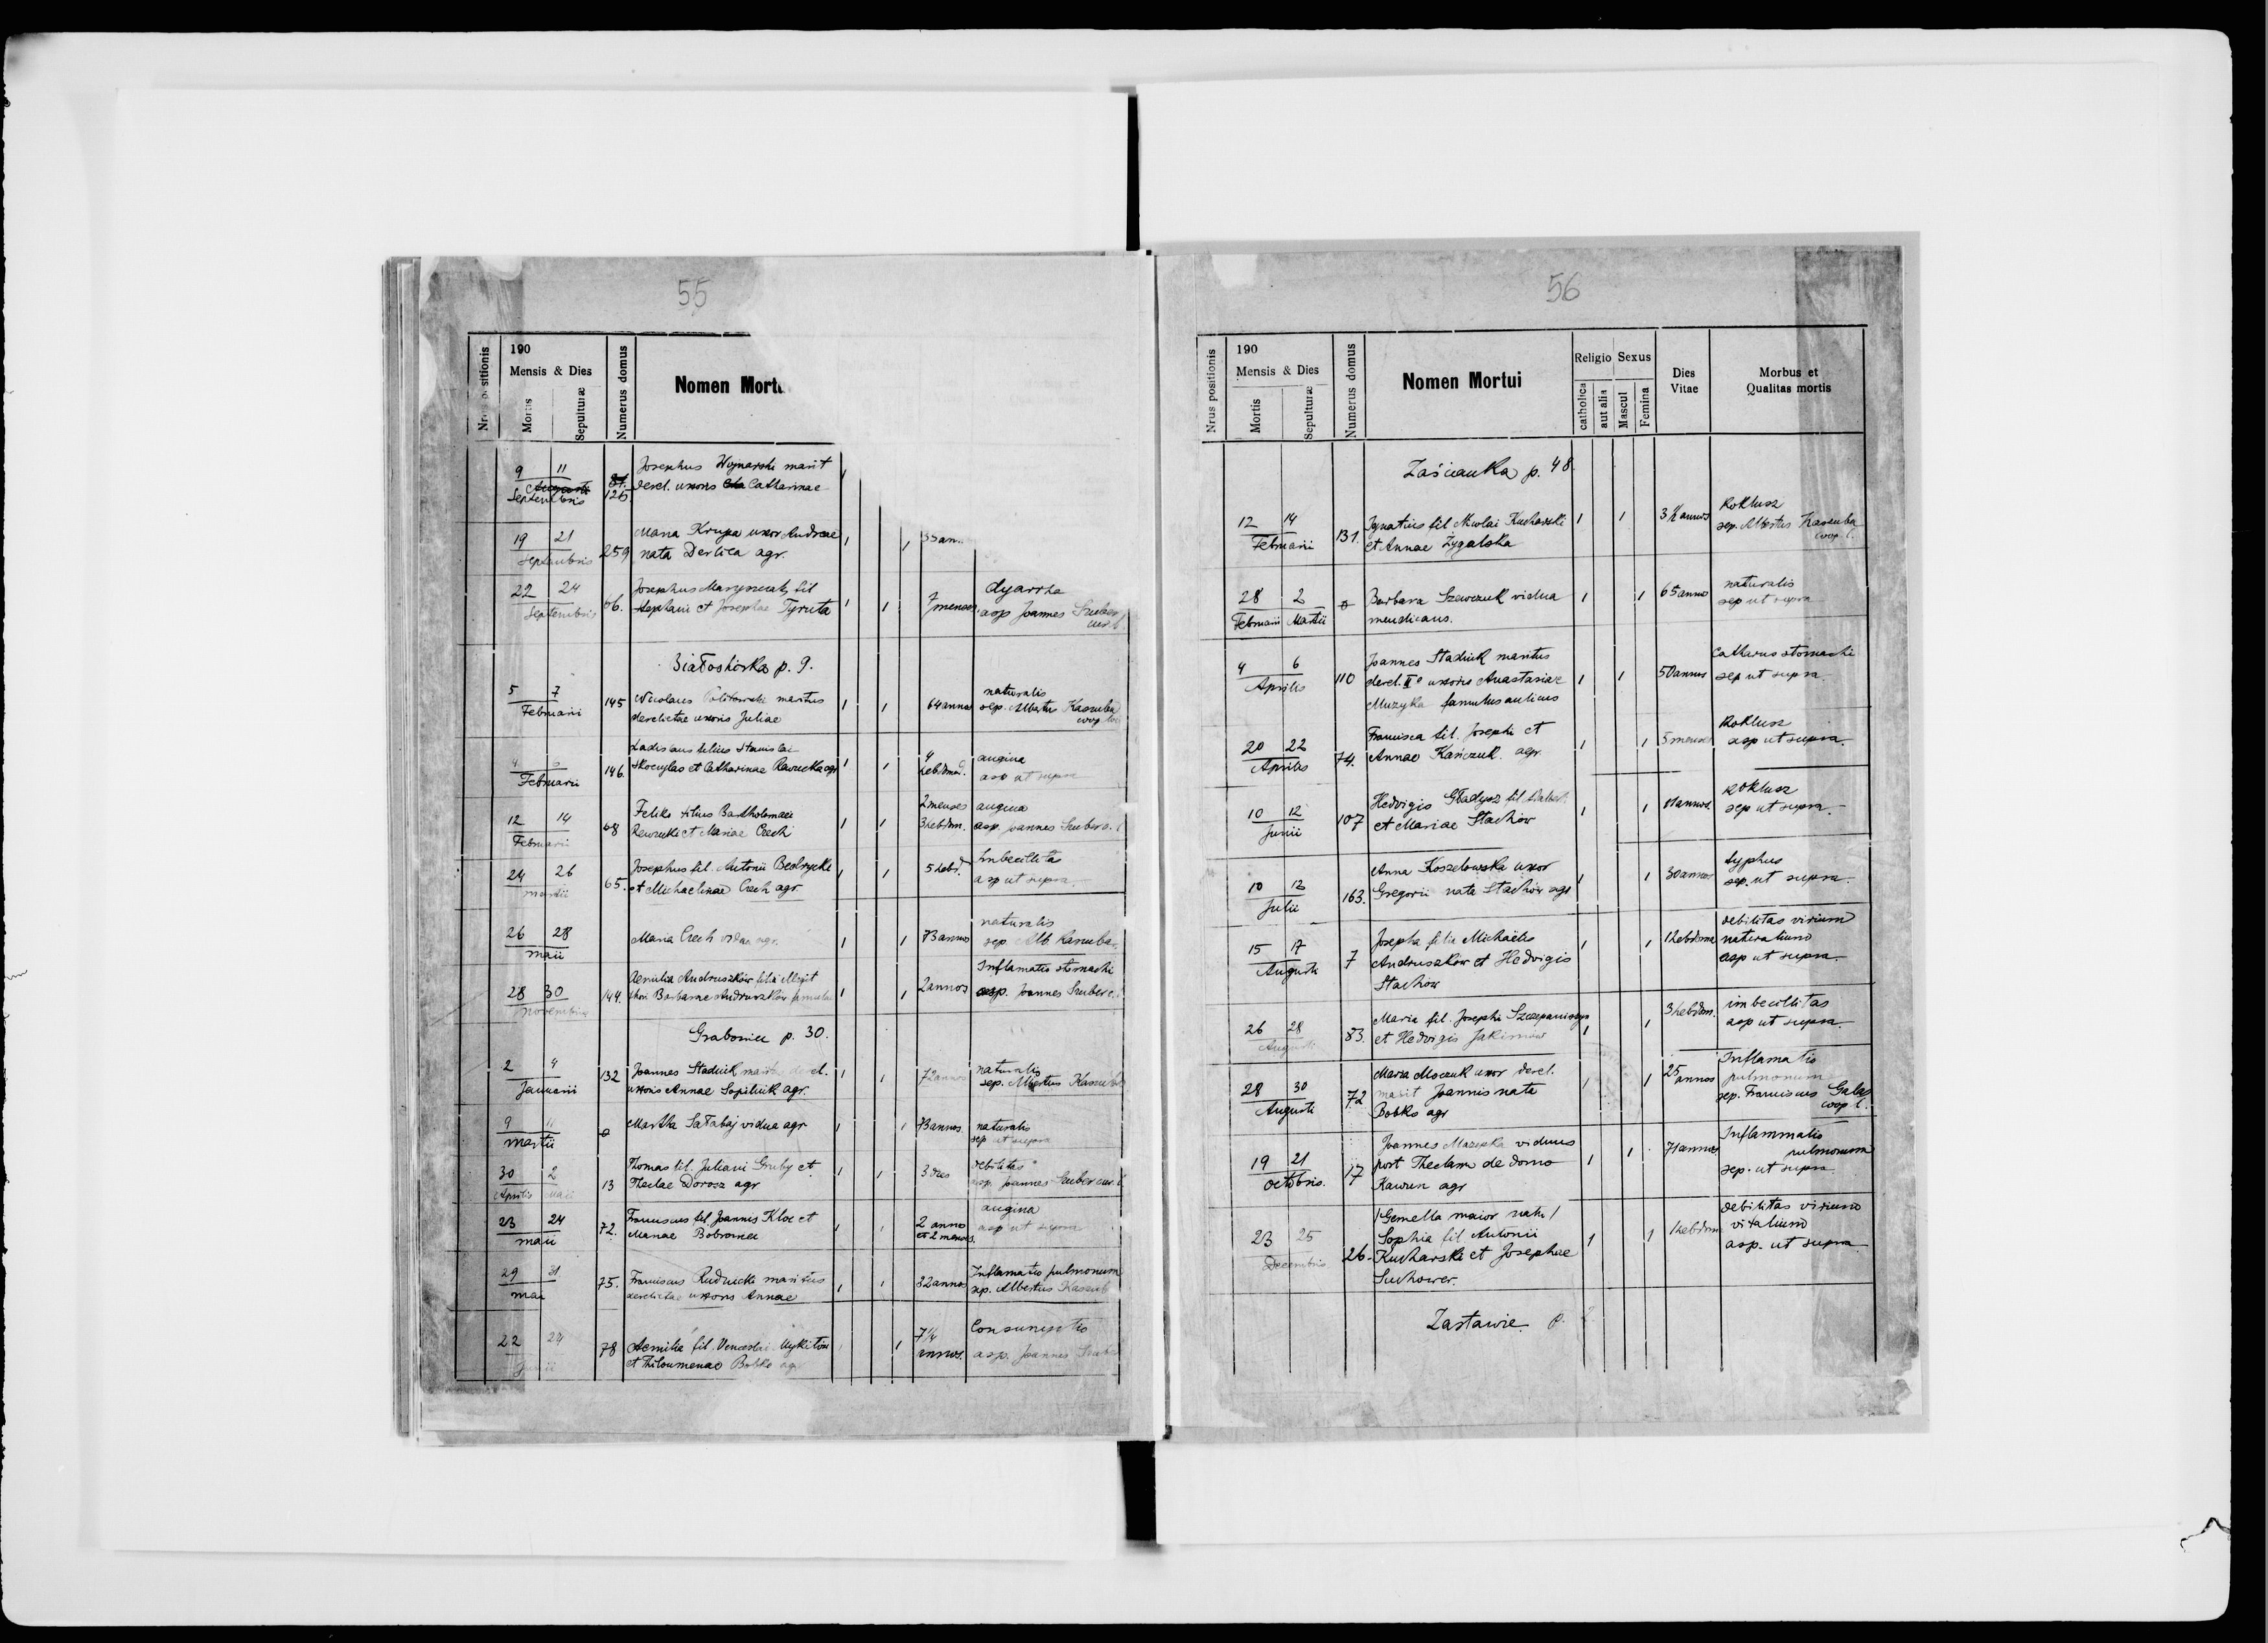 55
Nrus positionis
190
Mensis & Dies
Mortis
Sepulturæ
Numerus domus
Nomen Mortu
9 11
Augusti
Septembris
81.
126
Josephus Wojnarski marit
derel. uxoris Catharinae
1
19 21
Septembris
259
Maria Krupa uxor Andreae
nata Derlica agr.
1 1
22 24
Septembris
66.
Josephus Marynowicz fil
Stephani et Josephae Tyruta
1 1
7 menses
dyarrhea
asp Joannes Szuber
Białoskórka p. 9.
5 7
Februarii
145
Nicolaus maritus
derelictae uxoris Juliae
1 1
64 annos
naturalis
sep. Albertus Kaszuba
coop loci
4
Februarii
146.
Ladislaus filius Stanislai
Skoczylas et Catharinae Rawecka agr
1 1
4
hebdmd.
angina
asp ut supra
12 14
Februarii
68
Feliks filius Bartholomaei
Rewecki et Mariae Czech
1 1
2 menses
3 hebdom.
angina
asp. Joannes Szuber
24 26
martii
65.
Josephus fil. Antonii Bestrycki
et Michaelinae Czech agr
1 1
5 hebd.
Imbecilitas
asp ut supra
26 28
maii
Maria Czech vidua agr.
1 1
73 annos
naturalis
sep. Alb Kaszuba
28 30
novembris
144.
Aemilia Andruszków filia illegit
thori Barbarae Andruszków famulae
1 1
2 annos
Inflamatio stomachi
asp. Joannes Szuber
Grabowiec p. 30.
2 4
Januarii
132
Joannes Stadnik marit. derel.
uxoris Annae Sapilnik agr.
1 1
72 annos
naturalis
sep. Albertus Kaszuba
9 11
martii
0
Martha Sałabaj vidua agr
1 1
73 annos.
naturalis
sep ut supra
30 2
Aprilis Maii
13
Thomas fil. Juliani Gruby et
Theclae Dorosz agr
1 1
3 dies
debilitas
asp. Joannes Szuber
23 24
maii
72.
Franciscus fil. Joannis Kloc et
Mariae Bobrowiec
1 1
2 anno
et 2 menses.
angina
asp ut supra
29 31
mai
75.
Franciscus Rudnicki maritus
derelictae uxoris Annae
1 1
32 annos
Inflamatio pulmonum
sep. Albertus Kaszub
22 24
Junii
78
Aemilia fil. Venceslai Mykitów
et Philoumenae Bobko agr
1
7¼
annos.
Consumptio
asp. Joannes Szuber
56
Nrus positionis
190
Mensis & Dies
Mortis
Sepulturæ
Numerus domus
Nomen Mortui
Religio
catholica
aut alia
Sexus
Mascul
Femina
Dies
Vitae
Morbus et
Qualitas mortis
Zaścianka p. 48
12 14
Februarii
131.
Ignatius fil Nicolai Kucharski
et Annae Zygalska
1 1
3½ annos
Koklusz
sep. Albertus Kaszuba
coop. l.
28 2
Februarii Martii
0
Barbara Szewczuk vidua
mendicans.
1 1
65 annos
naturalis
sep ut supra
4 6
Aprilis
110
Joannes Stadnik maritus
derel. IIo uxoris Anastasiae
Muzyka famulus aulicus
1 1
50 annos
Catharus stomachi
sep ut supra.
20 22
Aprilis
74.
Francisca fil. Josephi et
Annae Kańczuk. agr.
1 1
5 menses
Koklusz
asp ut supra.
10 12
Junii
107
Hedvigis Gładysz fil Adalbert.
et Mariae Stachów
1 1
Koklusz
sep ut supra.
10 12
Julii
163.
Anna Koszelowska uxor
Gregorii nata Stachów agr
1 1
30 annos
typhus
sep. ut supra.
15 17
Augusti
7
Josepha filia Michaëlis
Andruszków et Hedvigis
Stachów
1 1
1 hebdoma
debilitas virium
naturalium
asp ut supra.
26 28
Augusti
83.
Maria fil. Josephi Szczepaniszyn
et Hedvigis Jakimów
1 1
3 hebdom.
imbecillitas
asp ut supra.
28 30
Augusti
72
Maria Moczuk uxor derel.
marit Joannis nata
Bobko agr
1 1
25
annos
Inflamatio
pulmonum
sep. Franciscus Galas
coop l.
19 21
octobris.
17
Joannes Mazepka viduus
post Theclam de domo
Kawun agr
1 1
71 annos
Inflammatio
pulmonum
sep. ut supra
23 25
Decembris
26.
/Gemella maior natu/
Sophia fil Antonii
Kucharski et Josephae
Suchower.
1 1
1 hebdom
debilitas virium
vitalium
asp. ut supra
Zastawie. p.